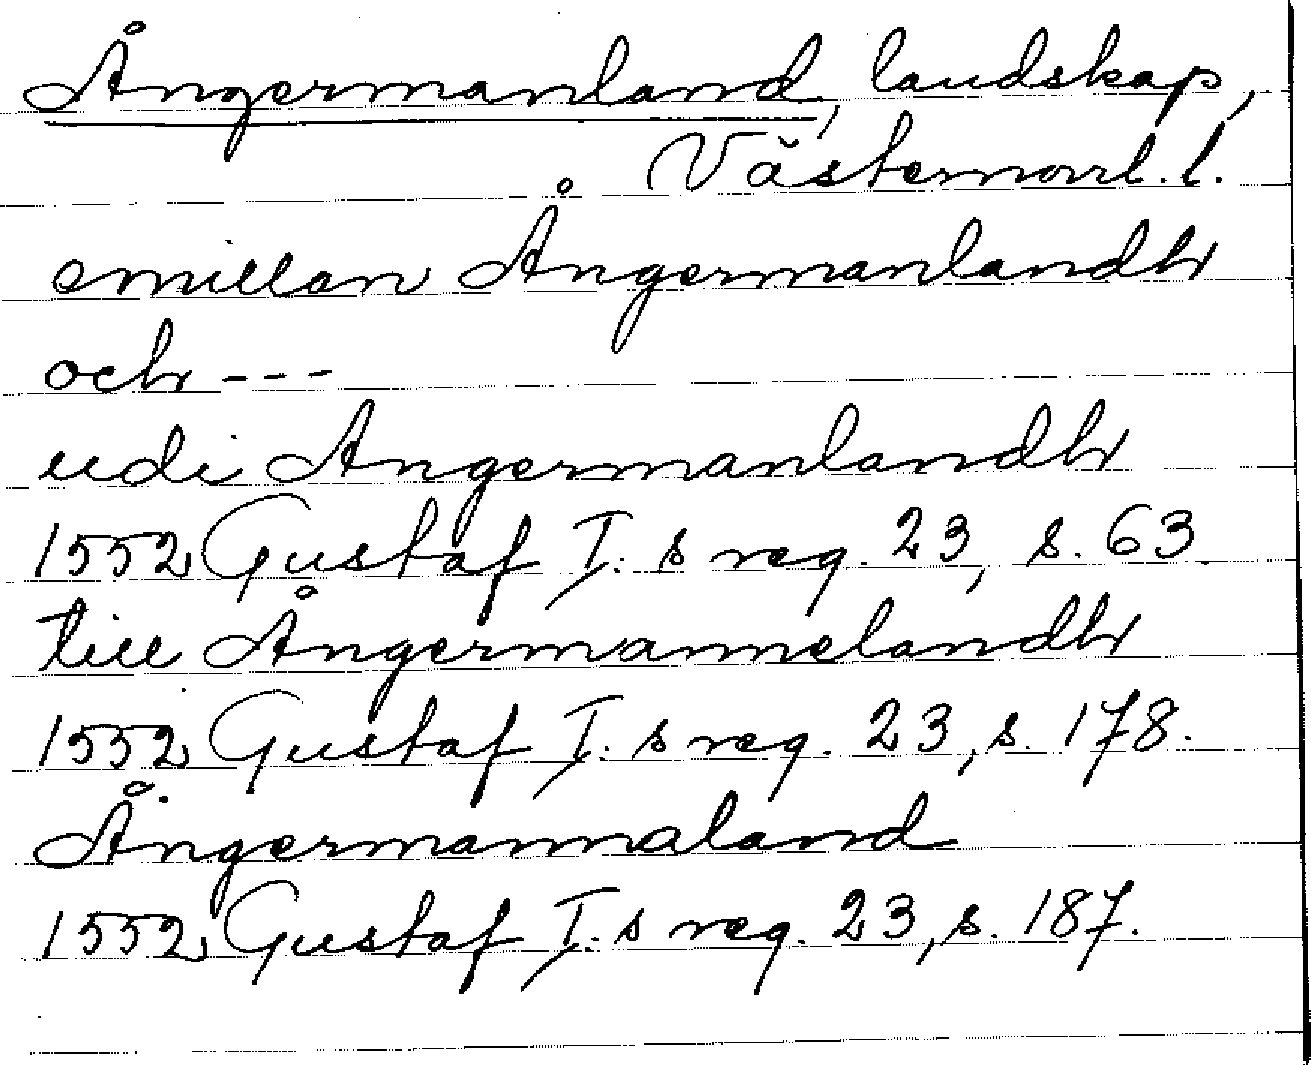 Ångermanland, landskap,
Västernorrl. l.
emillan Ångermanlandh
och - - -
udi Angermanlandh
1552 Gustaf I:s reg. 23, s. 63.
till Ångermannelandh
1552 Gustaf I:s reg. 23, s. 178.
Ångermannaland
1552 Gustaf I:s reg. 23, s. 187.